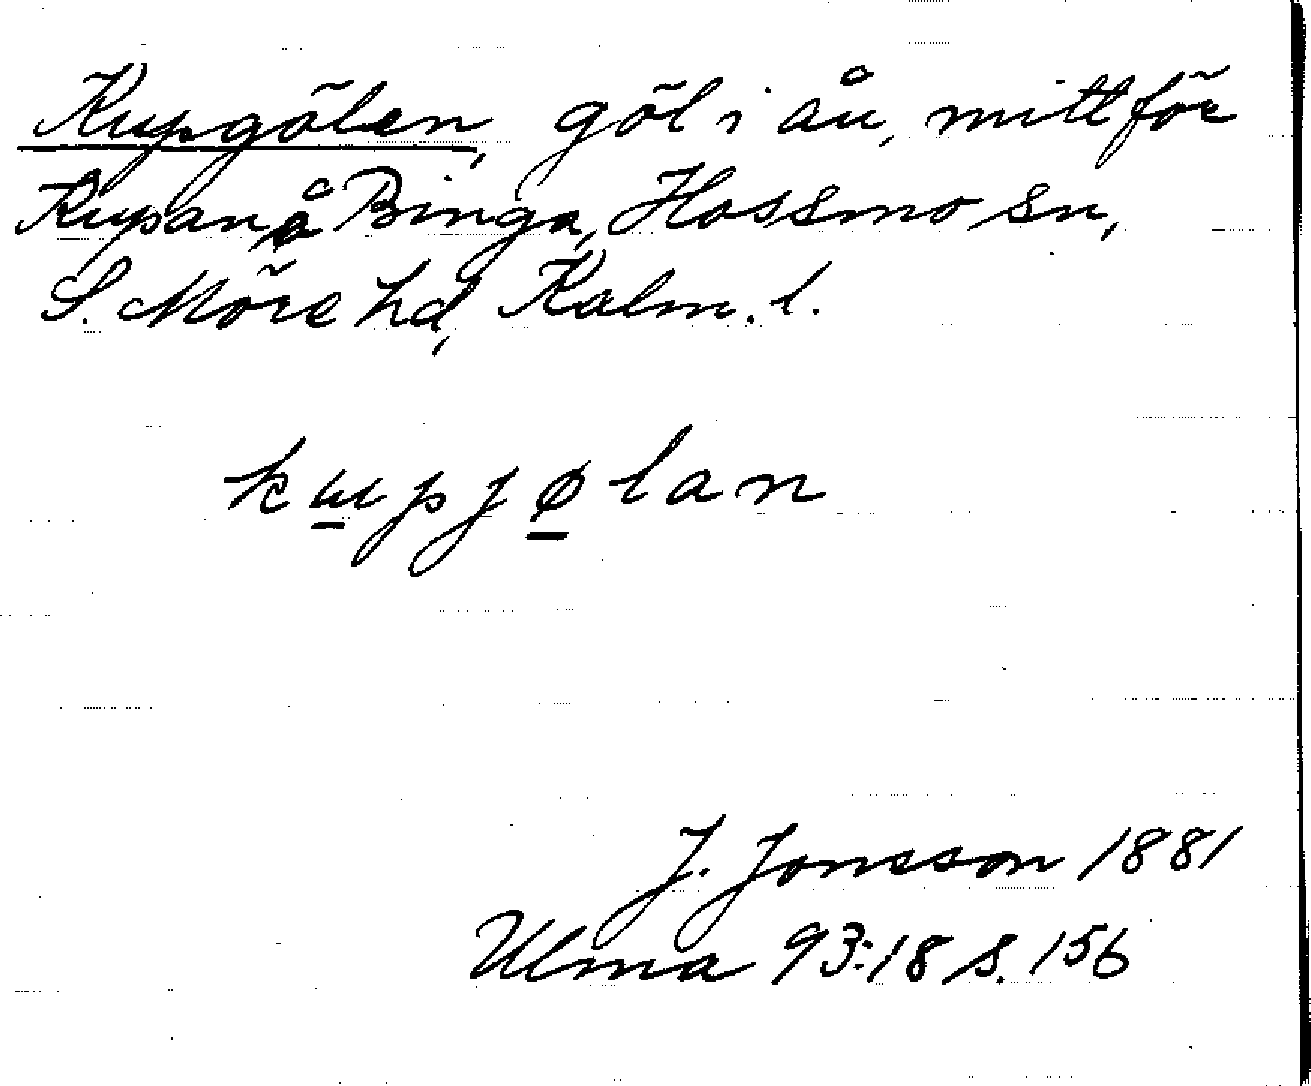 Kupgölen, göl i ån, mitt för
Kupan å Binga, Hossmo sn,
S. Möre hd, Kalm. l.
kupjølan
J. Jonsson 1881
Ulma 93:18 s. 156